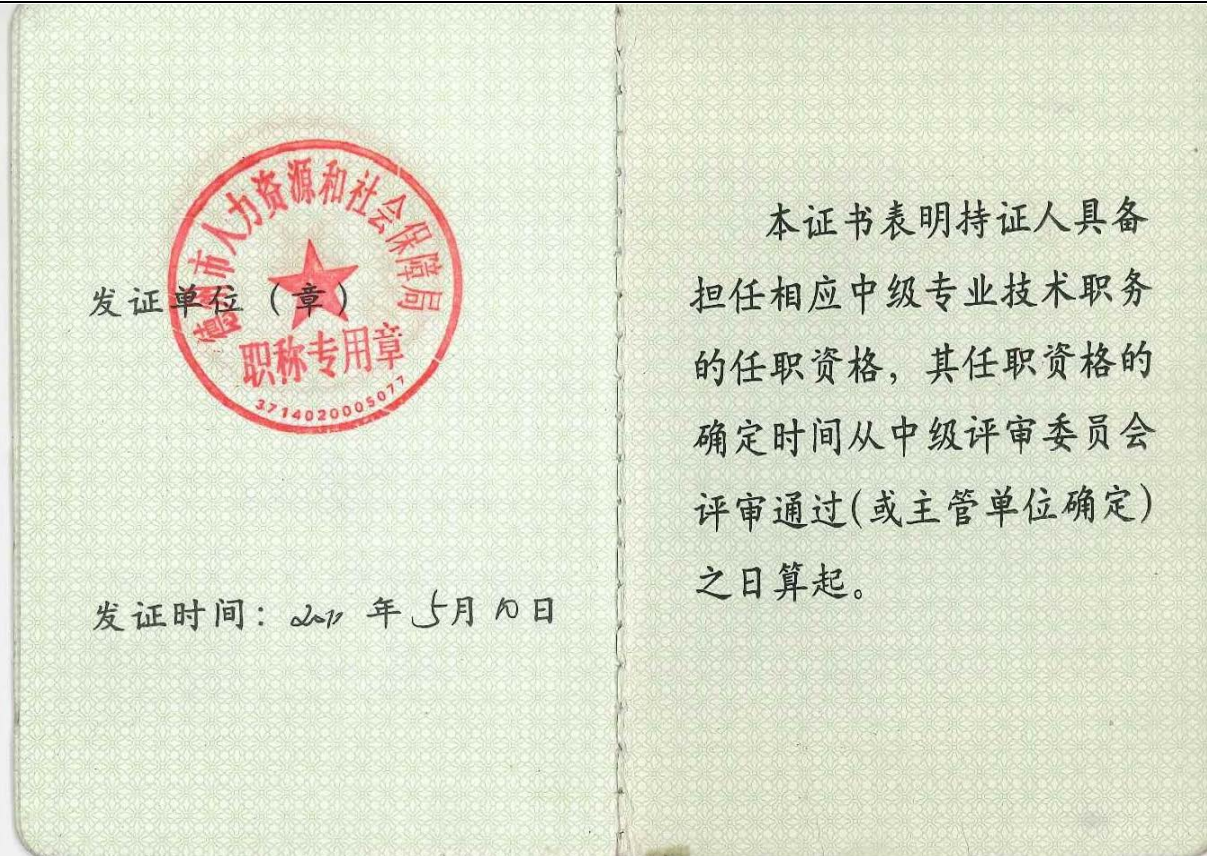 德州市人力资源和社会保障局
发证单位（章）
职称专用章
3714020005077
发证时间： 年5月10日
本证书表明持证人具备
担任相应中级专业技术职务
的任职资格，其任职资格的
确定时间从中级评审委员会
评审通过(或主管单位确定)
之日算起。